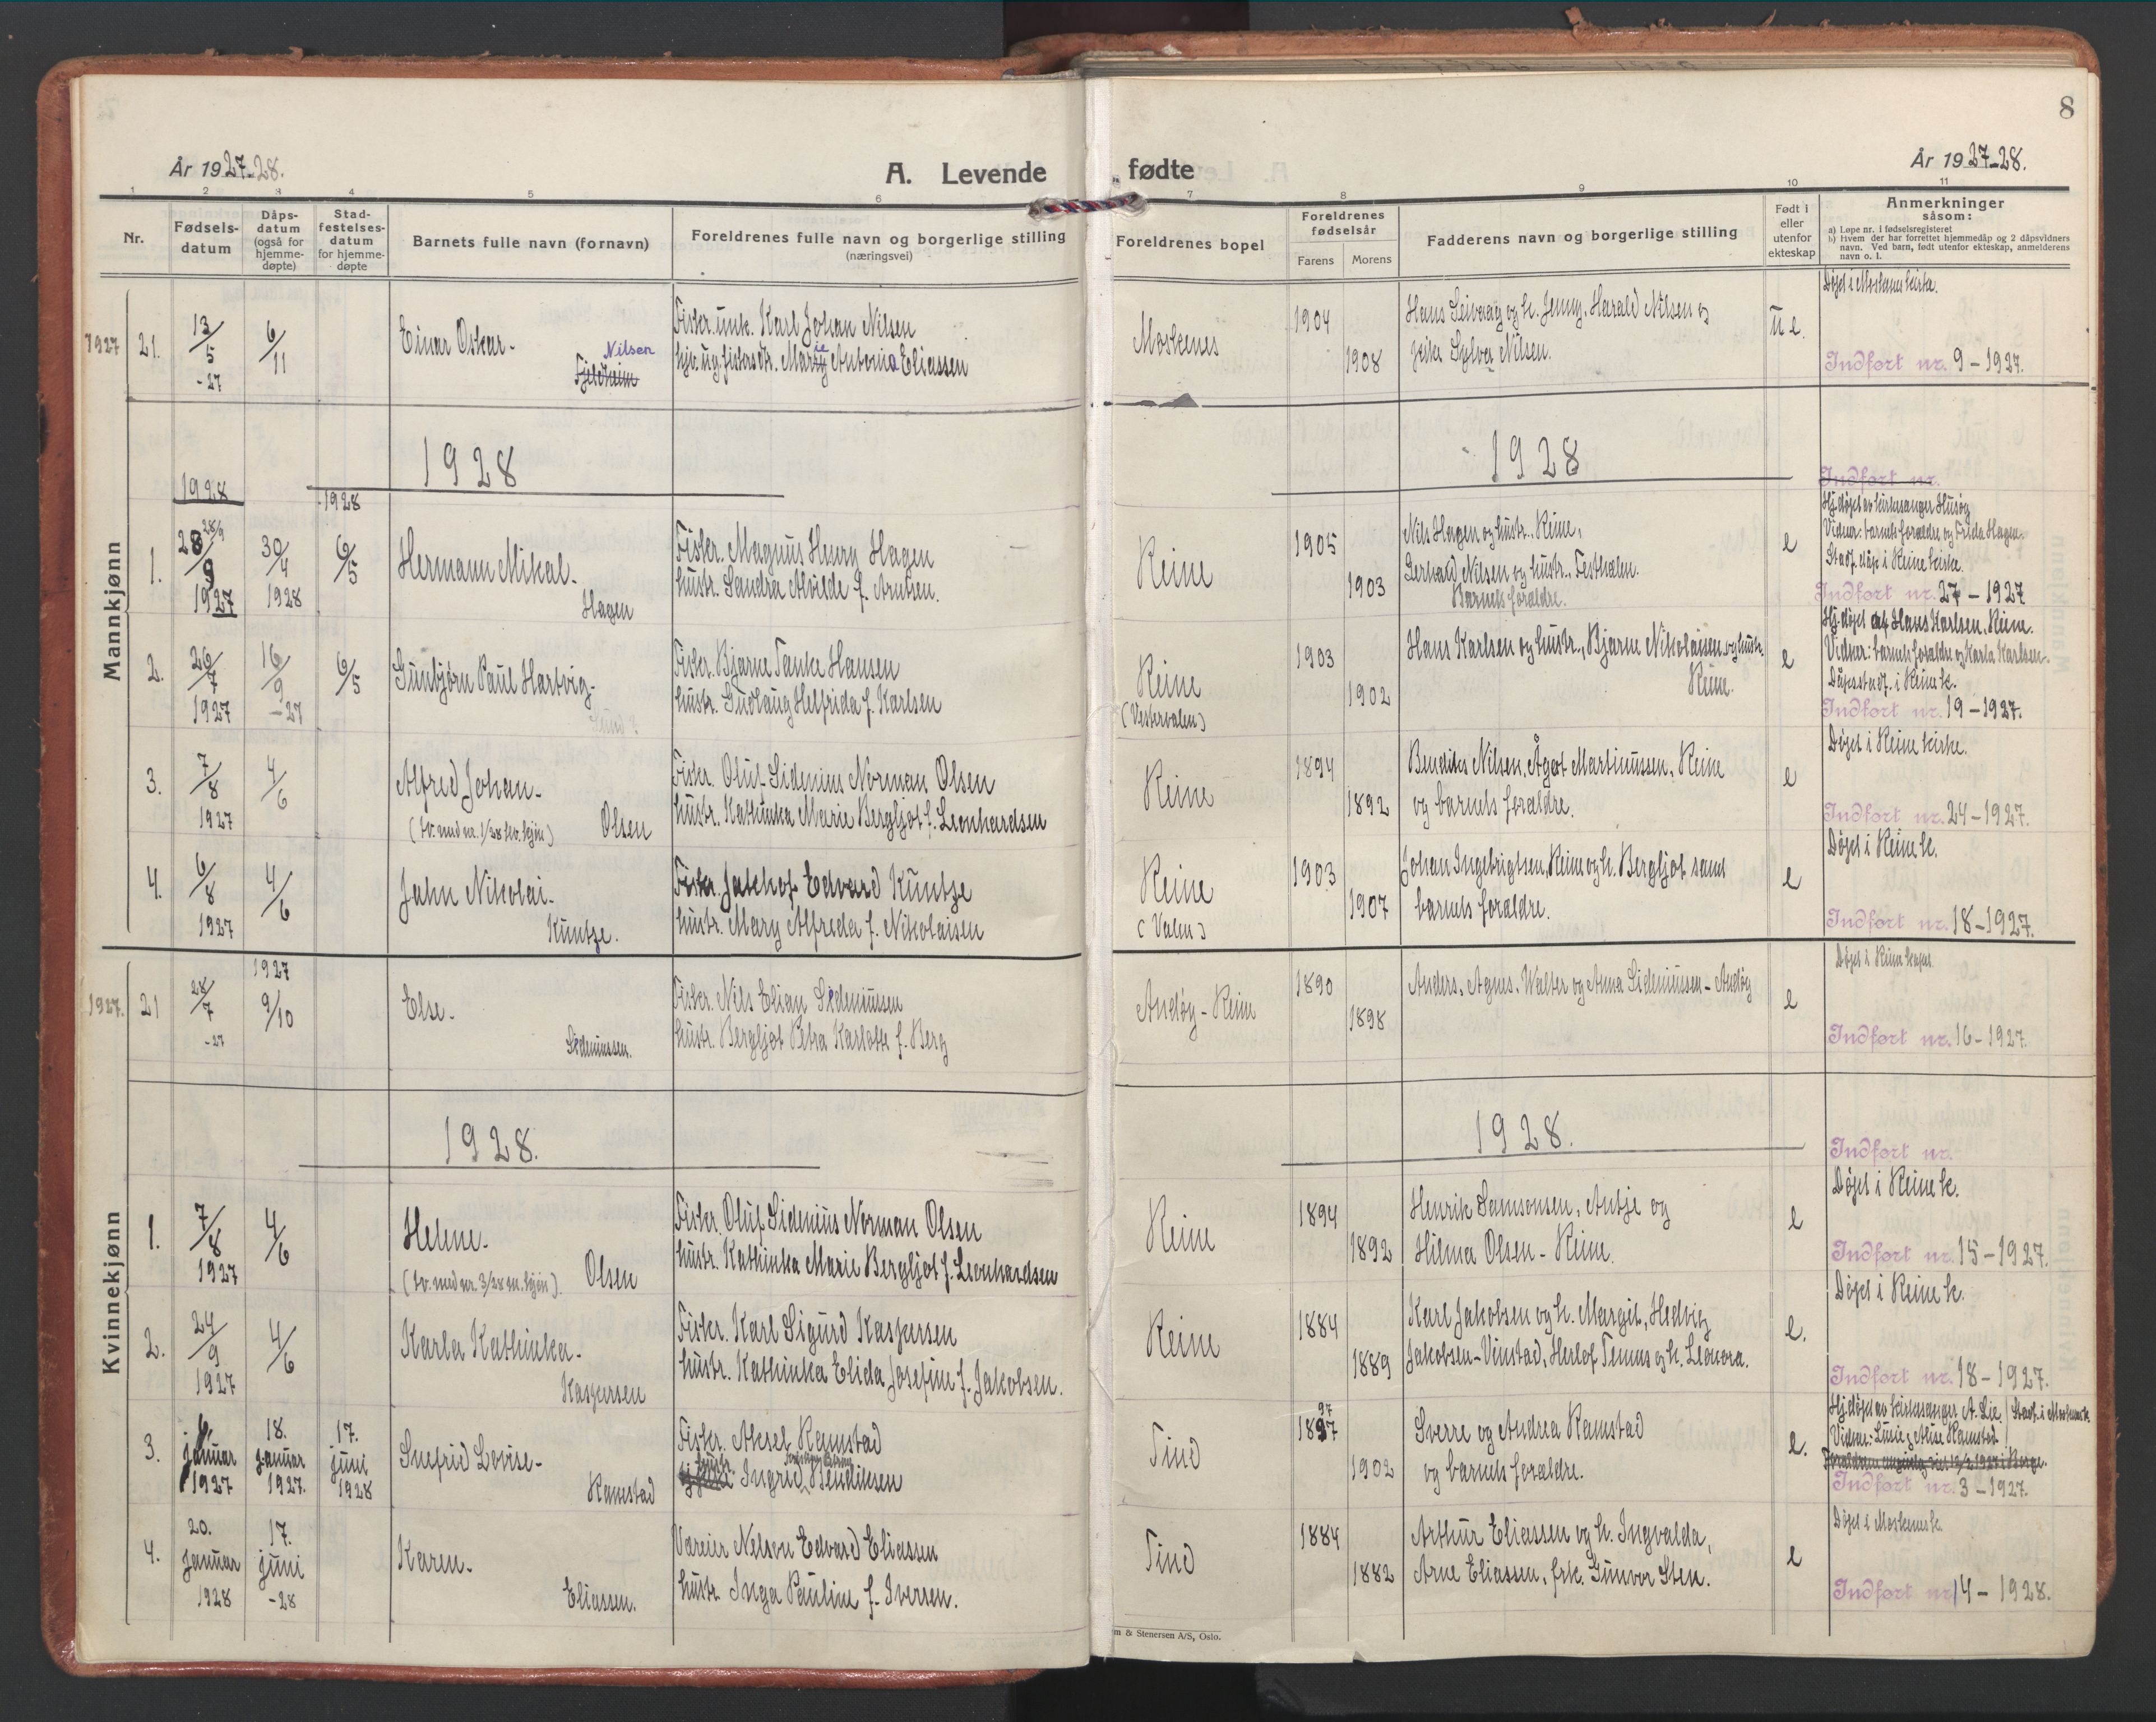 8
År 1927-28.
A. Levende fødte
År 1927-28.
1 2 3 4 5 6 7 8 9 10 11
Nr.
Fødsels-
datum
Dåps-
datum
(også for
hjemme-
døpte)
Stad-
festelses-
datum
for hjemme-
døpte
Barnets fulle navn (fornavn)
Foreldrenes fulle navn og borgerlige stilling
(næringsvei)
Foreldrenes bopel
Foreldrenes
fødselsår
Farens Morens
Fadderens navn og borgerlige stilling
Født i
eller
utenfor
ekteskap
Anmerkninger
såsom:
a) Løpe nr. i fødselsregisteret
b) Hvem der har forrettet hjemmedåp og 2 dåpsvidners
navn. Ved barn, født utenfor ekteskap, anmelderens
navn o. l.
Mannkjønn
1927 21. 13/5 -27 6/11
Einar Oskar-
Nilsen
Fjeldheim
Fisker. unk. Karl Johan Nilsen
Antonie Eliassen
Moskenes
1904
1908
Hans Leivaag og h. Jenny, Harald Nilsen og
Sylvi Nilsen.
u e.
Døpt i Moskenes kirke.
Indført nr. 9-1927.
1928
1928
1928
1928
Indført nr.
1. 28/9 1927 30/4 1928 6/5
28/9
Hermann Mikal-
Hagen
Fisker. Magnus Henry Hagen
hustr. Sandra Alvilde f. Arntsen.
Reine
1905
1903
Nils Hagen og hustr., Reine,
Gerhard Nilsen og hustr., Festhælen.
Barnets forældre.
e
Hj.døpt av kirkesanger Husøy
Vidner: barnets forældre og Frida Hagen.
Stadf. dåp i Reine kirke.
Indført nr. 27-1927
2. 26/7 1927 16/9 -27 6/5
Gunbjørn Paul Hartvig-
Fisker. Bjarne Tanke Hansen
hustr. Gudlaug Helfrida f. Karlsen
Reine
(Vestervalen)
1903
1902
Hans Karlsen og hustr., Bjarne Nikolaisen og hustr.
Reine.
e
Hj.døpt af Hans Karlsen, Reine.
Vidner: barnets forældre og Karla Karlsen.
Dåpsstadf. i Reine k.
Indført nr. 19-1927.
3. 7/8 1927 4/6
Alfred Johan-
(tv. med nr. 1/28 kv. kjøn) Olsen
Fisker. Oluf Sidenius Norman Olsen
hustr. Kathinka Marie Bergljot f. Leonhardsen
Reine
1894
1892
Bendiks Nilsen, Ågot Martinussen, Reine
og barnets forældre.
e
Døpt i Reine kirke.
Indført nr. 24-1927.
4. 6/8 1927 4/6
Jahn Nikolai-
Kuntze.
Fisker. Jakhof Edvard Kuntze
hustr. Mary Alfreda f. Nikolaisen
Reine
(Valen)
1903
1907
Johan Ingebrigtsen, Reine og h. Bergljot samt
barnets forældre.
e
Døpt i Reine k.
Indført nr. 18-1927.
Kvinnekjønn
1927. 21 28/7 -27 1927 9/10
Else-
Sideniussen.
Fisker. Nils Elian Sideniussen
hustr. Bergljot Petra Karlotte f. Berg
Andøy - Reine
1890
1898
Anders, Agnes, Walter og Anna Sideniussen - Andøy
e
Døpt i Reine kapel
Indført nr. 16-1927.
1928.
1928.
Indført nr.
1. 7/8 1927 4/6
Helene-
(tv. med nr. 3/28 m. kjøn). Olsen
Fisker. Oluf Sidenius Norman Olsen
hustr. Kathinka Marie Bergljot f. Leonhardsen
Reine
1894
1892
Henrik Samsonsen, Antje og
Hilma Olsen - Reine.
e
Døpt i Reine k.
Indført nr. 15-1927.
2. 24/9 1927 4/6
Karla Kathinka-
Kaspersen
Fisker. Karl Sigurd Kaspersen
hustr. Kathinka Elida Josefine f. Jakobsen.
Reine
1884
1889
Karl Jakobsen og h. Margit, Hedvig
Jakobsen - Vinstad, Herlof Tennes og h. Leonora.
e.
Døpt i Reine k.
Indført nr. 18-1927.
3. 6. januar 1927 18. januar 1927. 17. juni 1928
Snefrid Lovise-
Ramstad
Fisker. Aksel Ramstad
hustr. Ingrid Bendiksen
Tind
1897
97
1902
Sverre og Andrea Ramstad
og barnets forældre.
e.
Hj.døpt av kirkesanger A. Lie / Stadf. i Moskenes k.
Vidner: Lusie og Alise Ramstad.
Indført nr. 3-1927.
4. 20. januar 1928 17. juni -28
Karen-
Eliassen.
Væreier Nelson Edvard Eliassen
hustr. Inga Pauline f. Iversen.
Tind
1884
1882
Arthur Eliassen og h. Ingvalda,
Arne Eliassen, frk. Gunvor Sten.
e
Døpt i Moskenes k.
Indført nr. 14-1928.
& Stenersen A/S, Oslo.